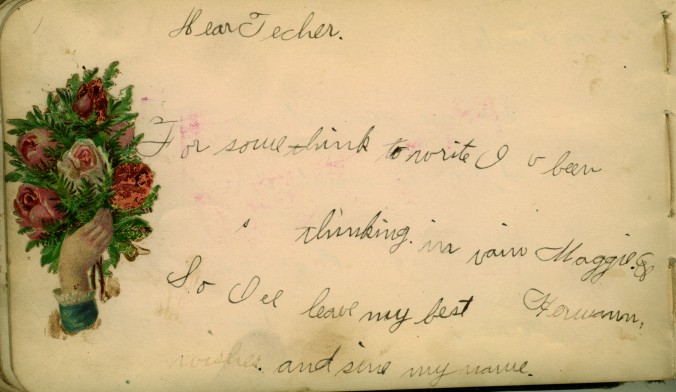 Dear Techer.
For some think to write I v been
thinking. in vain Maggie. &
So I ee leave my best Hermann.
wishes. and sine my name.